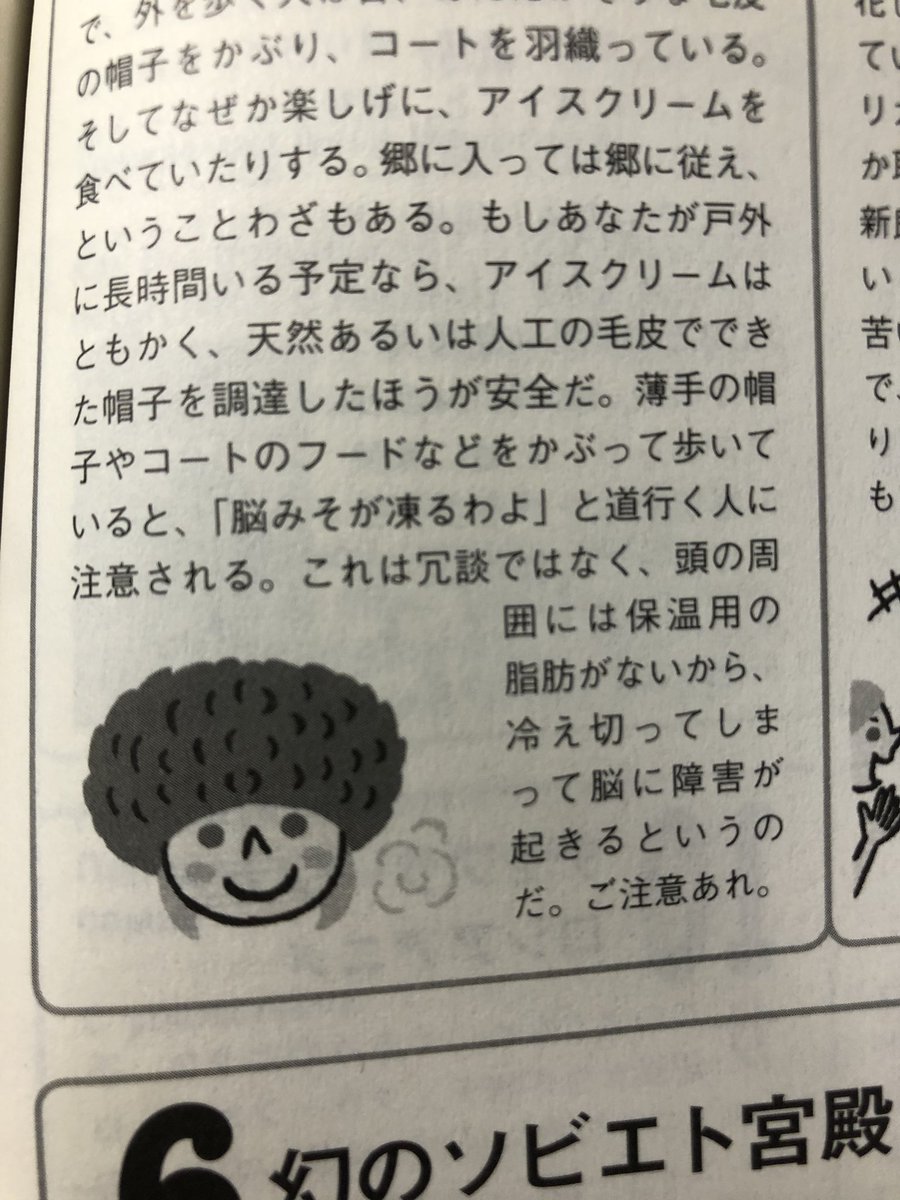 で、外を歩く人は皆、
の帽子をかぶり、コートを羽織っている。
そしてなぜか楽しげに、アイスクリームを
食べていたりする。郷に入っては郷に従え、
ということわざもある。もしあなたが戸外
に長時間いる予定なら、アイスクリームは
ともかく、天然あるいは人工の毛皮ででき
た帽子を調達したほうが安全だ。薄手の帽
子やコートのフードなどをかぶって歩いて
いると、「脳みそが凍るわよ」と道行く人に
注意される。これは冗談ではなく、頭の周
囲には保温用の
脂肪がないから、
冷え切ってしま
って脳に障害が
起きるというの
だ。ご注意あれ。
6 幻のソビエト宮殿
てい
リカ
い
苦い
で、
り
も